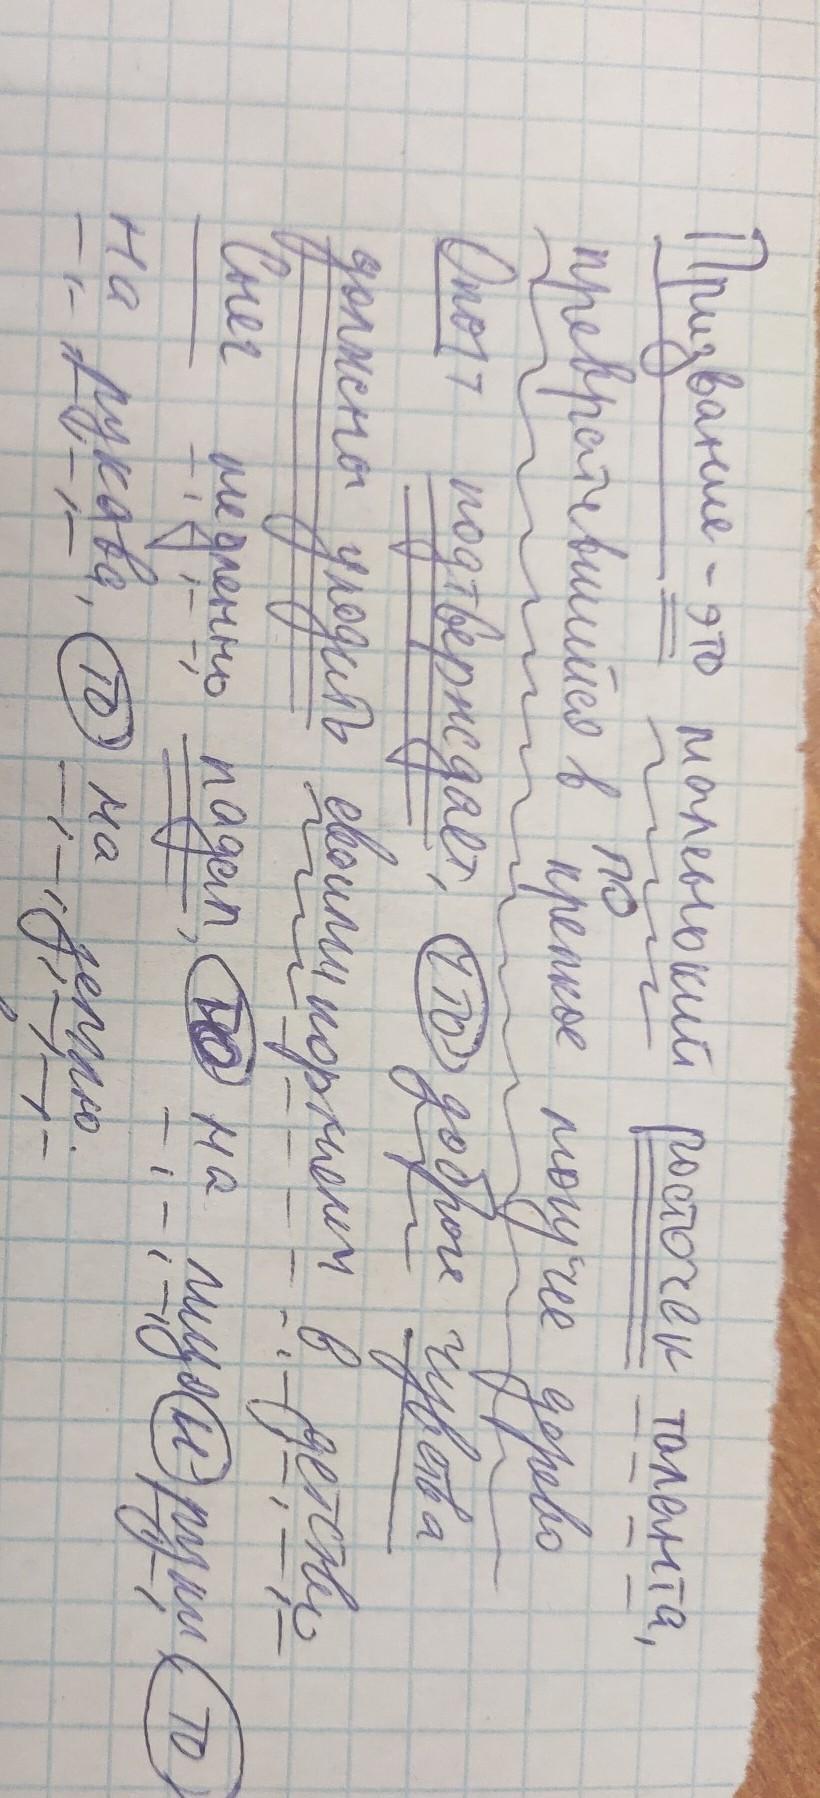 Призвание - это маленький росточек таланта,
по
превратившийся в крепкое могучее дерево
Опыт подтверждает, что доброе чувства
должны уходить своими корнями в детство
Снег медленно падал, то на лицо и руки, то
на рукава, то на землю.